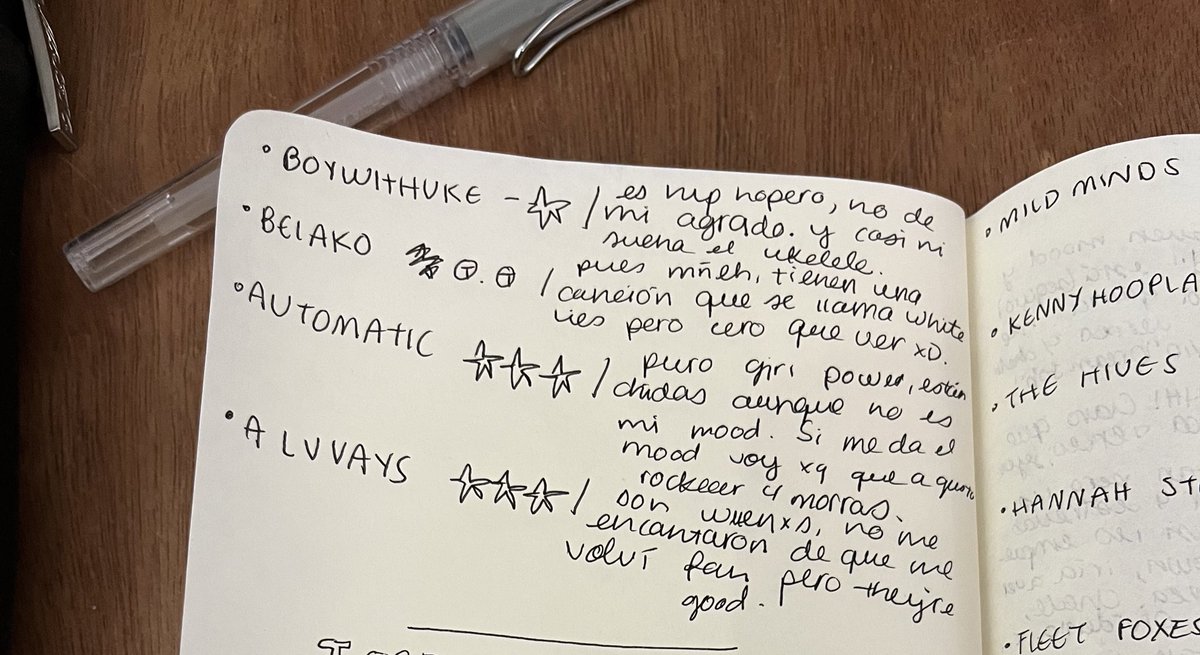 • BOYWITHUKE - ☆ / es hip hopero, no de
mi agrado. y casi ni
suena el ukelele.
• BELAKO / pues mñeh, tienen una
canción que se llama white
lies pero cero que ver xD.
• AUTOMATIC ☆☆☆ / puro girl power, están
chidas aunque no es
mi mood. Si me da el
mood voy xq que a quien
rockeeer 4 morras.
• ALVVAYS ☆☆☆ / son wuenxs, no me
encantaron de que me
volví fan pero they're
good.
• MILD MINDS
• KENNYHOOPLA
• THE HIVES
• HANNAH
• FLEET FOXES